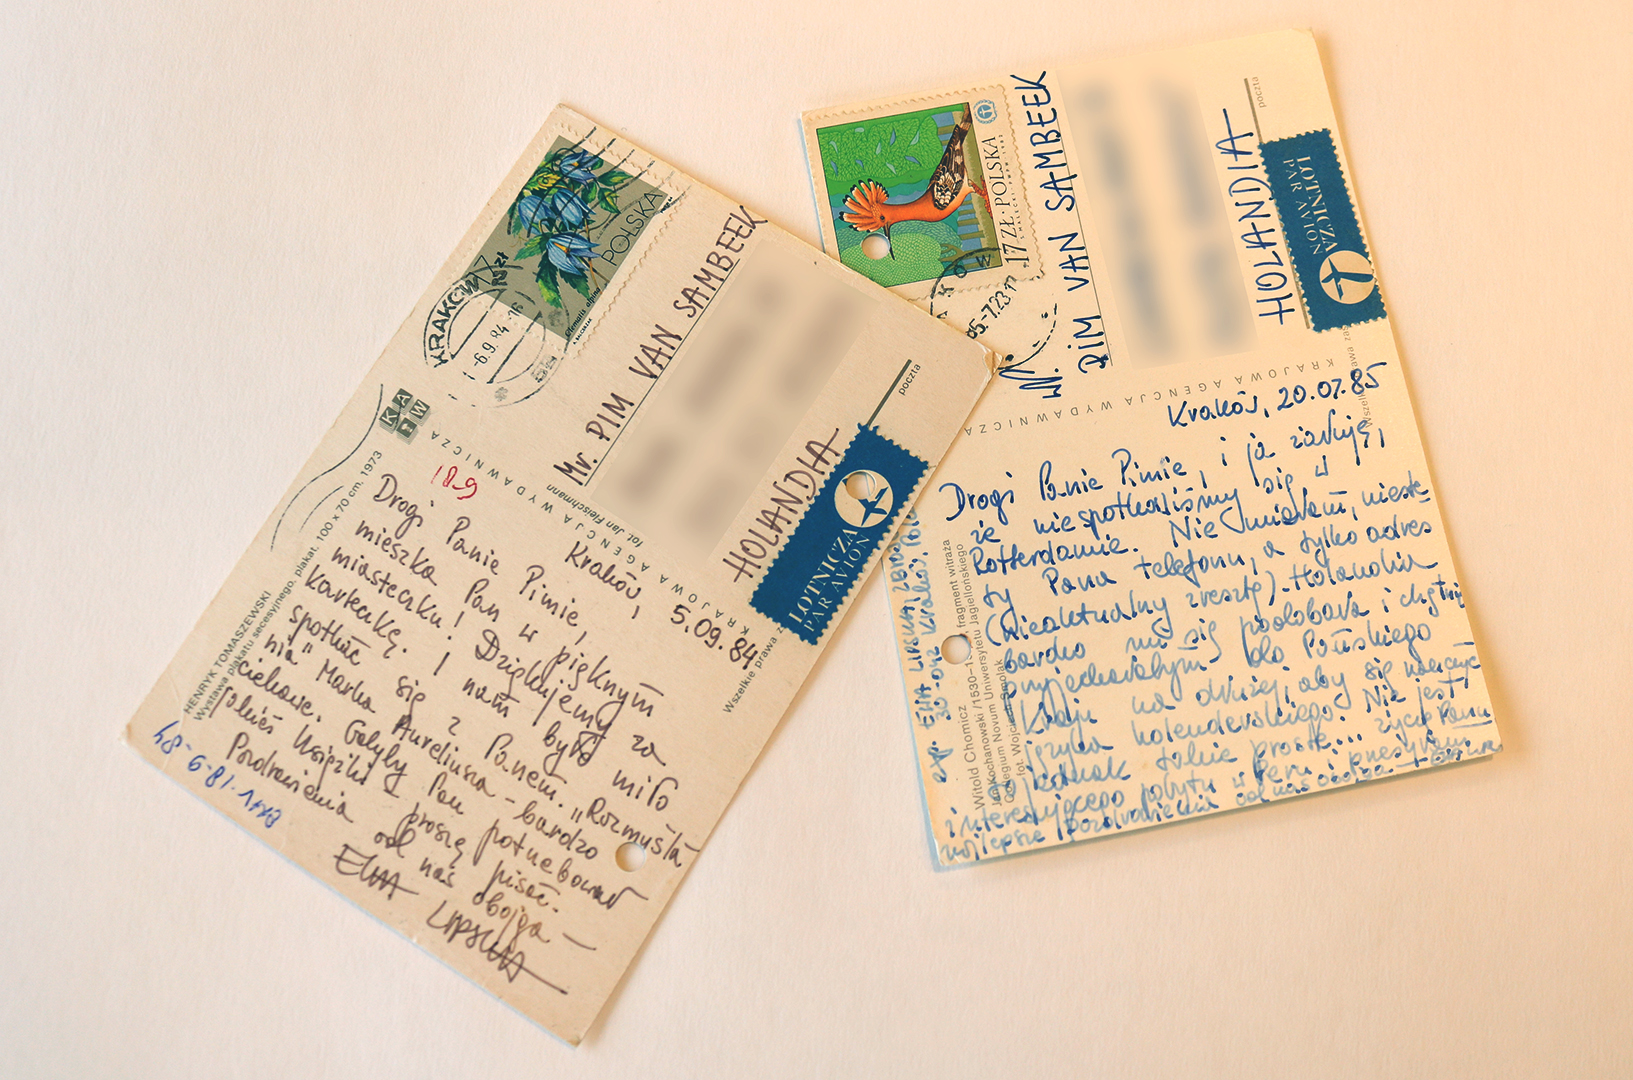 POLSKA
Clematis alpina
KRAKÓW
-6.9.84.-16
KAW
KRAJOWA AGENCJA WYDAWNICZA
fot. Jan Fleischmann
Mr. PIM VAN SAMBEEK
HOLANDIA
poczta
LOTNICZA
PAR AVION
Wszelkie prawa
HENRYK TOMASZEWSKI
Wystawa plakatu secesyjnego, plakat. 100 x 70 cm. 1973
18-9
Kraków, 5.09.84
Drogi Panie Pimie,
mieszka Pan w pięknym
miasteczku! Dziękujemy za
karteczkę. I nam było miło
spotkać się z Panem. „Rozmyśla
nia" Marka Aureliusza – bardzo
ciekawe. Gdyby Pan potrzebował
jakieś książki – proszę pisać.
Pozdrowienia od nas obojga –
EWA LIPSKA
18-9-84
17 ZŁ · POLSKA
Mr.
PIM VAN SAMBEEK
HOLANDIA
poczta
LOTNICZA
PAR AVION
KRAJOWA AGENCJA WYDAWNICZA
Kraków, 20.07.85
Drogi Panie Pimie, i ja żałuję,
że nie spotkaliśmy się w
Rotterdamie. Nie miałam, nieste-
ty Pana telefonu, a tylko adres
(nieaktualny zresztą). Holandia
bardzo mi się podobała i chętnie
przyjechałabym do Pańskiego
Kraju na dłużej, aby się nauczyć
języka holenderskiego. Nie jest
to jednak takie proste... życzę Panu
interesującego pobytu w Peru i przesyłam
najlepsze pozdrowienia od nas obojga –
exp. EWA LIPSKA
30-042 Kraków
Witold Chomicz fragment witraża
Jan Kochanowski /1530–
Collegium Novum Uniwersytetu Jagiellońskiego
fot. Wojciech Smolak